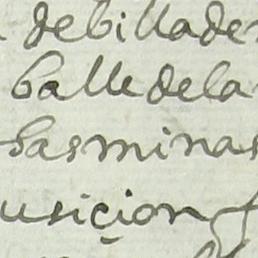 debillade
balle dela
basminas
usiçion